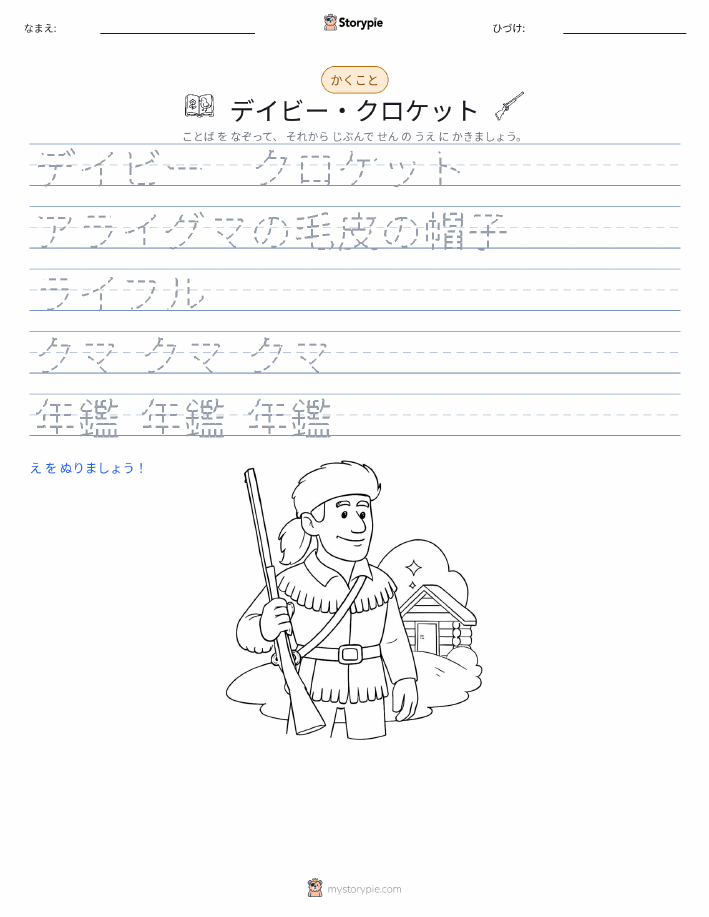 なまえ:
Storypie
ひづけ:
かくこと
デイビー・クロケット
ことば を なぞって、 それから じぶんで せん の うえ に かきましょう。
デイビー クロケット
アライグマの毛皮の帽子
ライフル
クマ クマ クマ
年鑑 年鑑 年鑑
え を ぬりましょう！
mystorypie.com